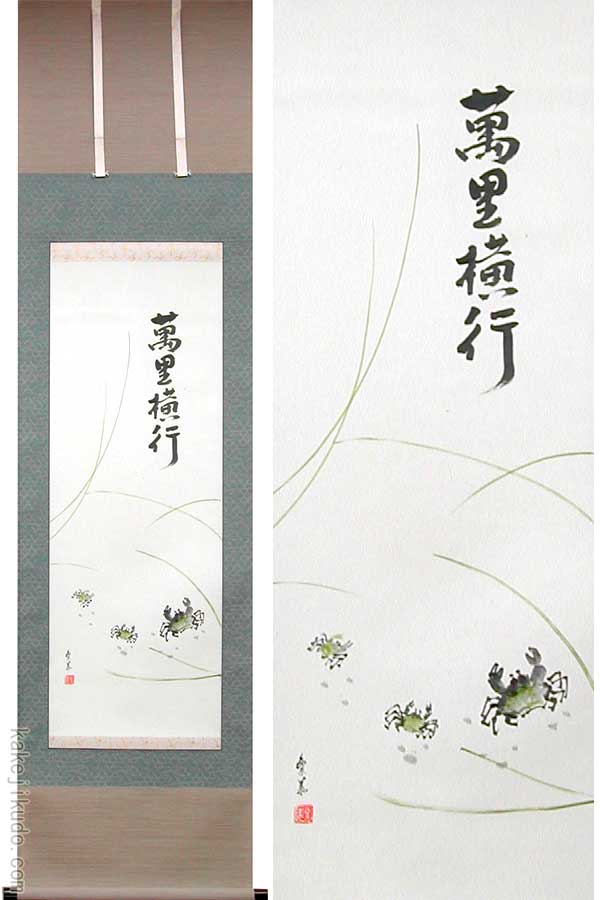 萬里横行
萬里横行
kakejikudo.com